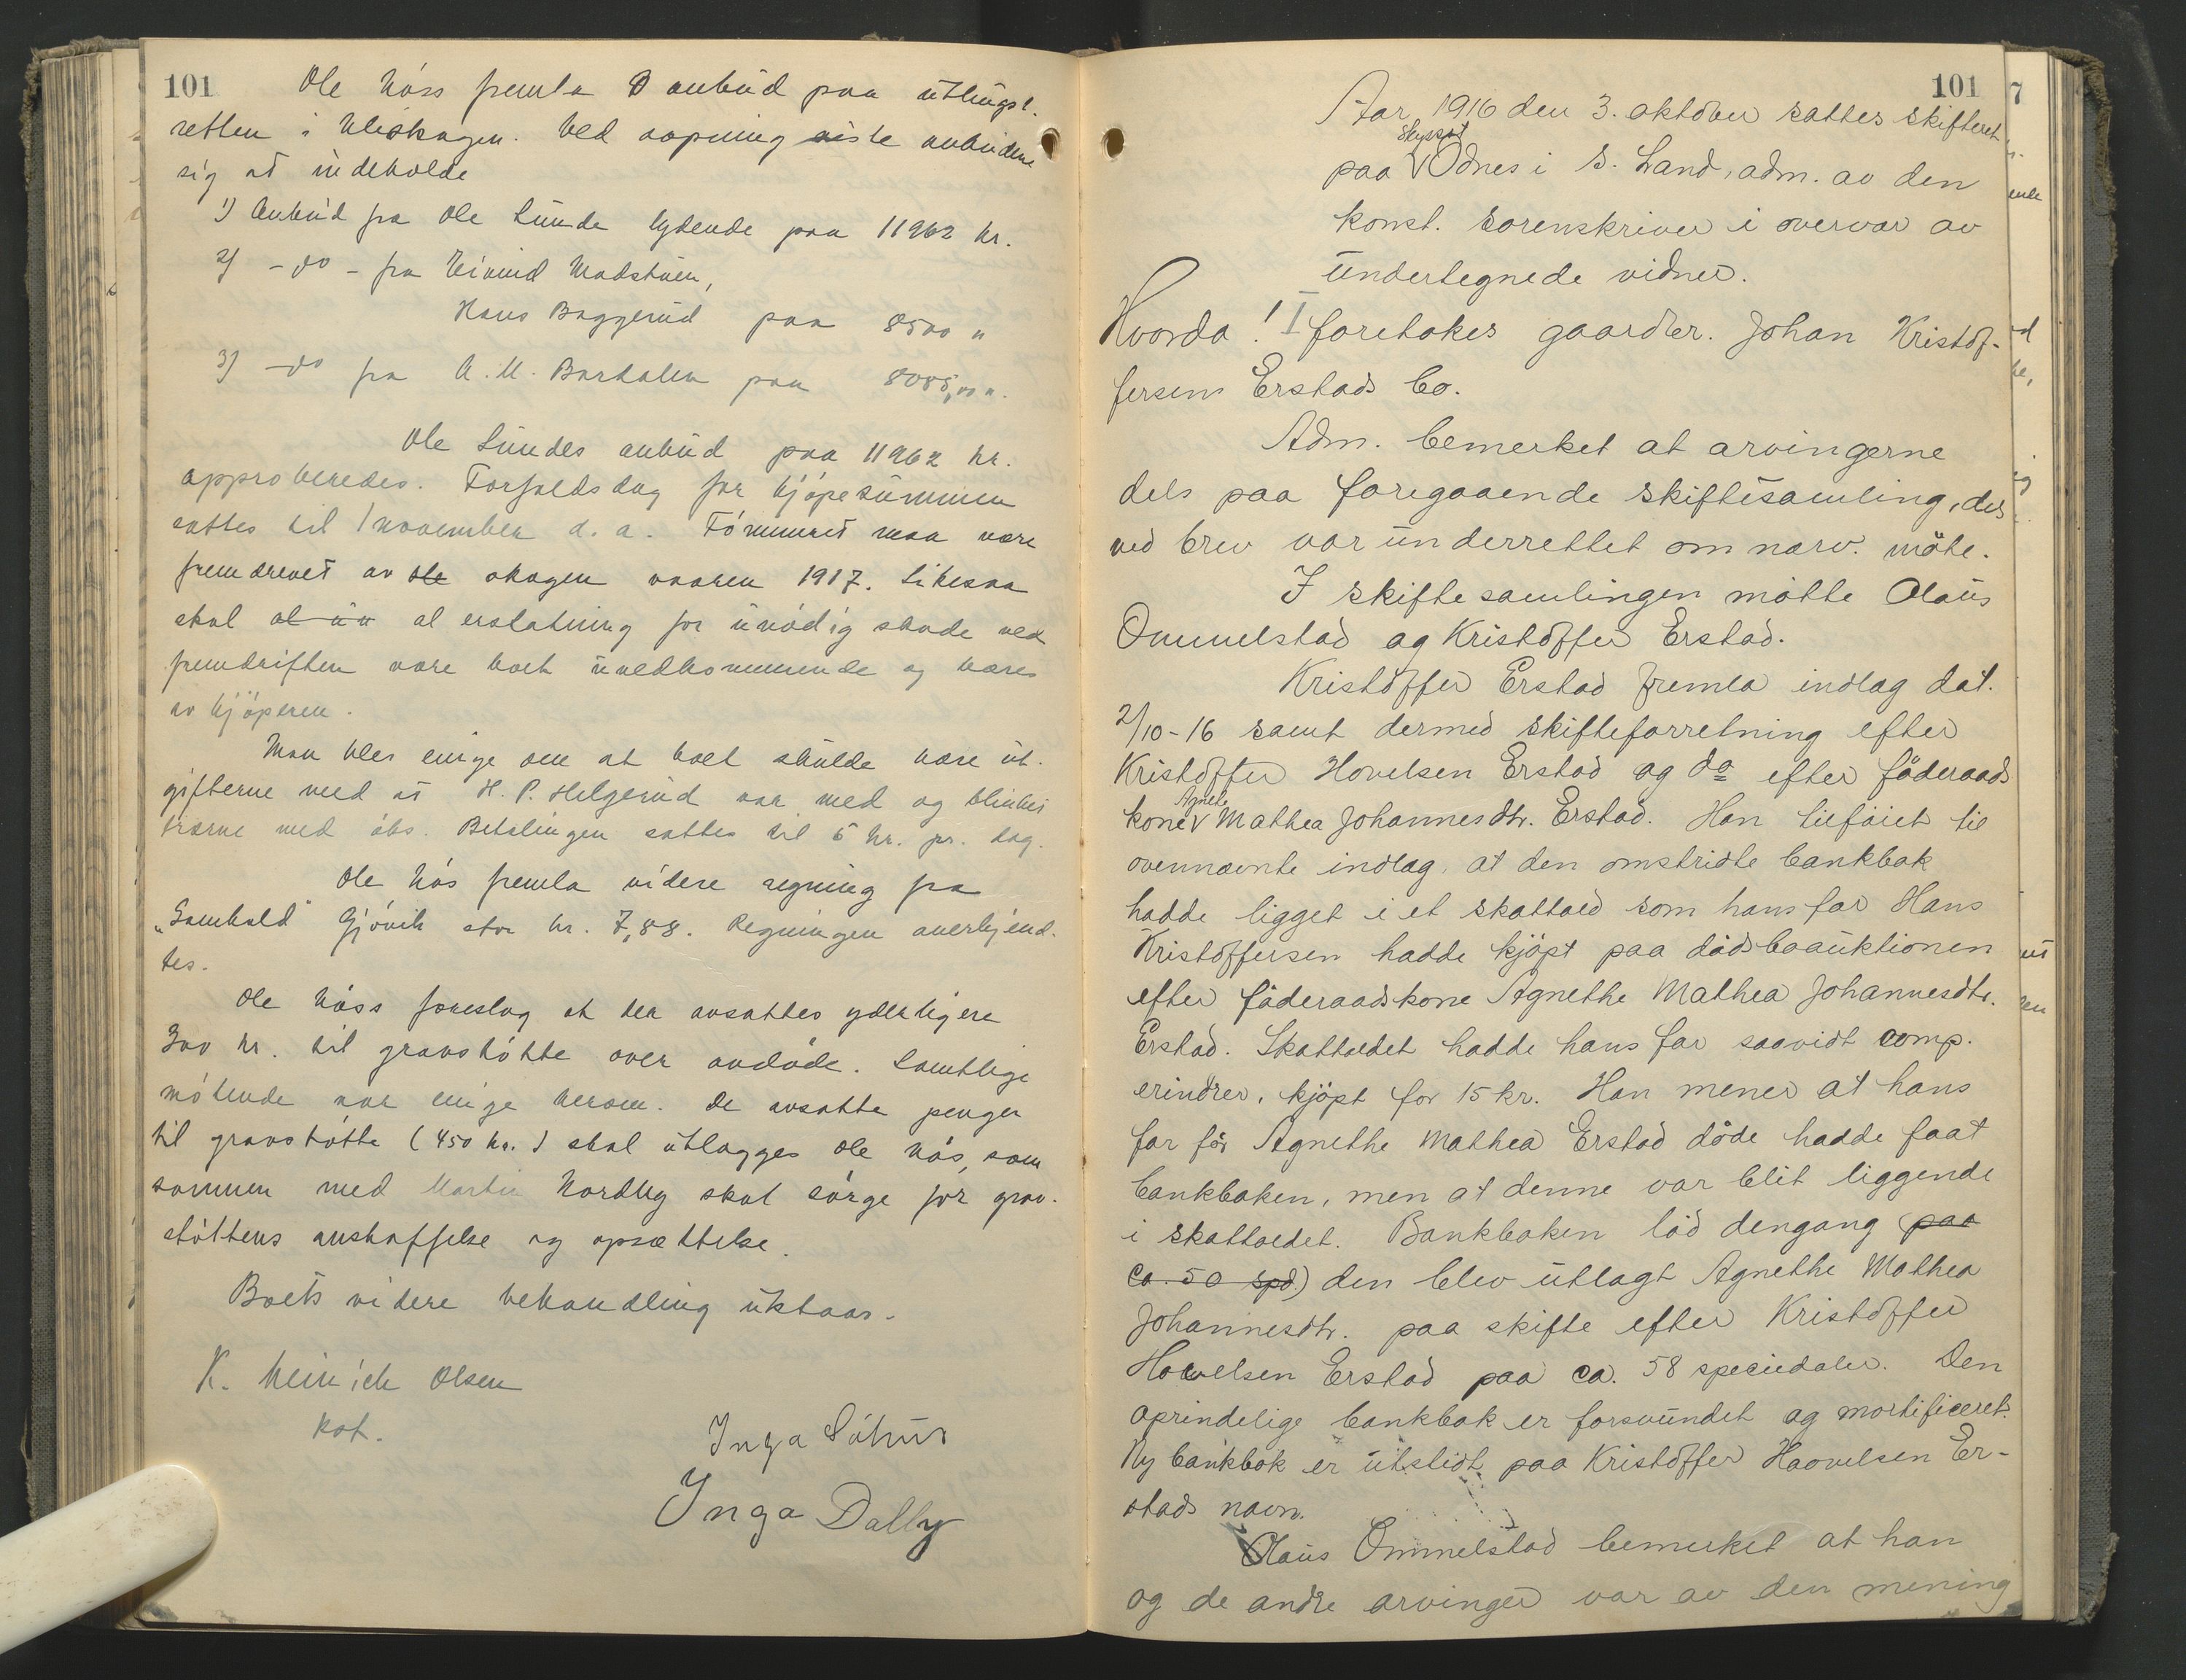 101
Ole Nöss fremla 3 anbud paa uthugst-
retten i Uliskogen. Ved aapning viste anbudene
sig at indeholde
1) Anbud fra Ole Lunde lydende paa 11962 kr.
2) - do - fra Eivind Madstuen,
Hans Baggerud paa 8500 "
3) - do fra A. M. Bardalen paa 8085,00 ".
Ole Lundes anbud paa 11962 kr.
approberedes. Forfaldsdag for kjöpesummen
sattes til 1 november d. a. Tömmeret maa være
fremdrevet av ole skogen vaaren 1917. Likesaa
skal al un al erstatning for unödig skade ved
fremdriften være boet uvedkommende og bæres
av kjöperen.
Man blev enige om at boet skulde bære ut-
gifterne med at H. P. Helgerud var med og blinket
trærne med öks. Betalingen sattes til 5 kr. pr. dag.
Ole Nös fremla videre regning fra
"Samhold" Gjövik stor kr. 7,88. Regningen anerkjend-
tes.
Ole Nöss foreslog at der avsattes yderligere
300 kr. til gravstötte over avdöde. Samtlige
mötende var enige herom. De avsatte penger
til gravstötte (450 kr.) skal utlægges Ole Nös, som
sammen med Martin Nordby skal sörge for grav-
stöttens anskaffelse og opsættelse.
Boets videre behandling utstaar.
K. Heinrich Olsen
kst.
Inga Söhus
Inga Dally
101
Aar 1916 den 3. oktober sattes skifteret
skysst
paa V Odnes i S. Land, adm. av den
konst. sorenskriver i overvær av
undertegnede vidner.
Hvorda! I foretokes gaardbr. Johan Kristof-
fersens Erstads bo.
Adm. bemerket at arvingerne
dels paa foregaaende skiftesamling, dels
ved brev var underrettet om nærv. möte.
I skiftesamlingen mötte Olaus
Ommelstad og Kristoffer Erstad.
Kristoffer Erstad fremla indlæg dat.
2/10-16 samt dermed skifteforretning efter
Kristoffer Hovelsen Erstad og do efter föderaads
Agnete
kone V Mathea Johannesdtr. Erstad. Han tilföiet til
ovennævnte indlæg, at den omstridte bankbok
hadde ligget i et skattold som hans far Hans
Kristoffersen hadde kjöpt paa dödsboauktionen
efter föderaadskone Agnethe Mathea Johannesdtr.
Erstad. Skattoldet hadde hans far saavidt comp.
erindrer, kjöpt for 15 kr. Han mener at hans
far för Agnethe Mathea Erstad döde hadde faat
bankboken, men at denne var blit liggende
i skattoldet. Bankboken löd dengang (paa
ca. 50 spd.) den blev utlagt Agnethe Mathea
Johannesdtr. paa skifte efter Kristoffer
Hovelsen Erstad paa ca. 58 speciedaler. Den
oprindelige bankbok er forsvundet og mortificeret.
Ny bankbok er utstedt paa Kristoffer Haavelsen Er-
stads navn.
Olaus Ommelstad bemerket at han
og de andre arvinger var av den mening
7